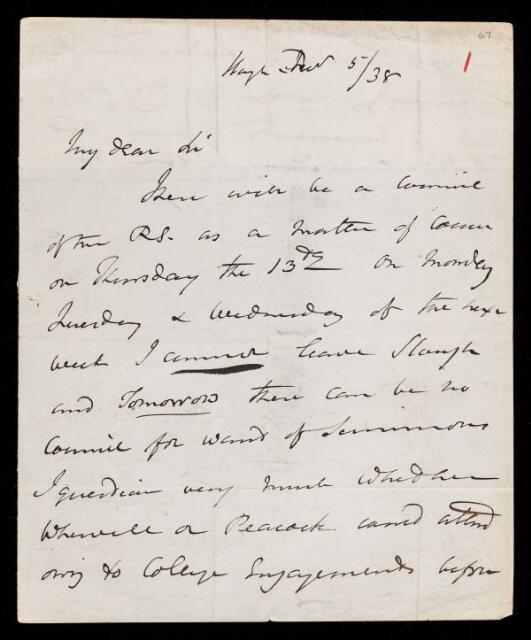 67
5/38
My dear Sir
There will be a Council
of the RS. as a matter of course
on Thursday the 13th On Monday
Tuesday & Wednesday of the next
week I cannot leave Slough
and Tomorrow there can be no
Council for want of Summons
I question very much whether
Whewell or Peacock could attend
owing to College Engagements before